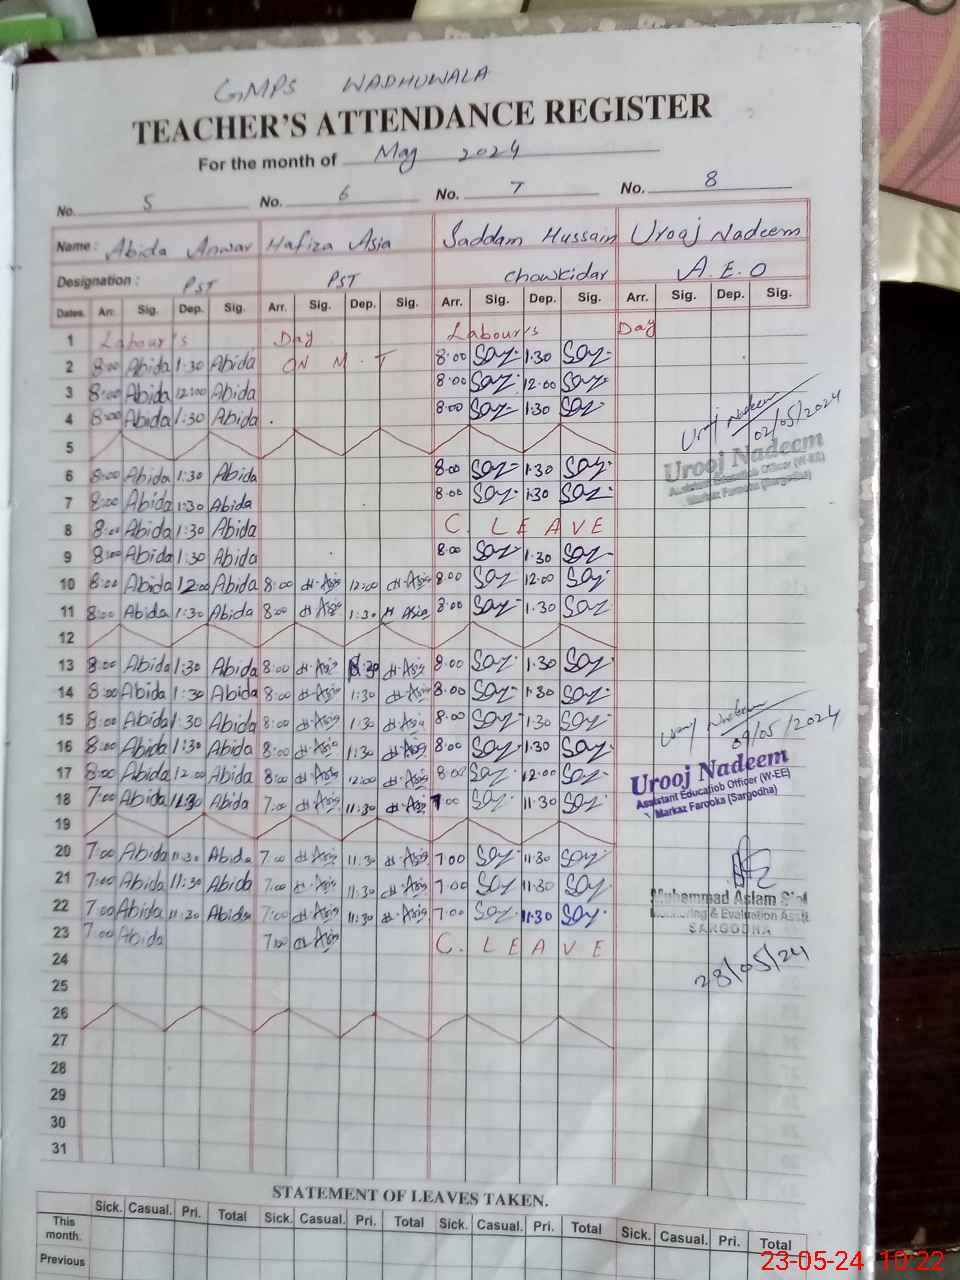 GMPS WADHUWALA
TEACHER'S ATTENDANCE REGISTER
For the month of May 2024
No. 5 No. 6 No. 7 No. 8
Name: Abida Anwar Hafiza Asia Saddam Hussain Urooj Nadeem
Designation: PST PST Chowkidar A.E.O
Dates. Arr. Sig. Dep. Sig. Arr. Sig. Dep. Sig. Arr. Sig. Dep. Sig. Arr. Sig. Dep. Sig.
1 Labour's Day Labour's Day
2 8:00 Abida 1:30 Abida ON M.T 8:00 1:30
3 8:00 Abida 12:00 Abida 8:00 12:00
4 8:00 Abida 1:30 Abida 8:00 1:30
02/05/2024
5
Urooj Nadeem
Assistant Education Officer (W-EE)
Markaz Farooka (Sargodha)
6 8:00 Abida 1:30 Abida 8:00 1:30
7 8:00 Abida 1:30 Abida 8:00 1:30
8 8:00 Abida 1:30 Abida C. LEAVE
9 8:00 Abida 1:30 Abida 8:00 1:30
10 8:00 Abida 12:00 Abida 8:00 H.Asia 12:00 H.Asia 8:00 12:00
11 8:00 Abida 1:30 Abida 8:00 H.Asia 1:30 H Asia 8:00 1:30
12
13 8:00 Abida 1:30 Abida 8:00 H.Asia 1:30 H.Asia 8:00 1:30
14 8:00 Abida 1:30 Abida 8:00 H.Asia 1:30 H.Asia 8:00 1:30
15 8:00 Abida 1:30 Abida 8:00 H.Asia 1:30 H.Asia 8:00 1:30
09/05/2024
16 8:00 Abida 1:30 Abida 8:00 H.Asia 1:30 H.Asia 8:00 1:30
17 8:00 Abida 12:00 Abida 8:00 H.Asia 12:00 H.Asia 8:00 12:00
Urooj Nadeem
Assistant Education Officer (W-EE)
Markaz Farooka (Sargodha)
18 7:00 Abida 11:30 Abida 7:00 H.Asia 11:30 H.Asia 7:00 11:30
19
20 7:00 Abida 11:30 Abida 7:00 H.Asia 11:30 H.Asia 7:00 11:30
21 7:00 Abida 11:30 Abida 7:00 H.Asia 11:30 H.Asia 7:00 11:30
22 7:00 Abida 11:30 Abida 7:00 H.Asia 11:30 H.Asia 7:00 11:30
Muhammad Aslam
Monitoring & Evaluation Asstt
SARGODHA
23 7:00 Abida 7:00 H.Asia C. LEAVE
28/05/24
24
25
26
27
28
29
30
31
STATEMENT OF LEAVES TAKEN.
Sick. Casual. Pri. Total Sick. Casual. Pri. Total Sick. Casual. Pri. Total Sick. Casual. Pri. Total
This month.
Previous
23-05-24 10:22